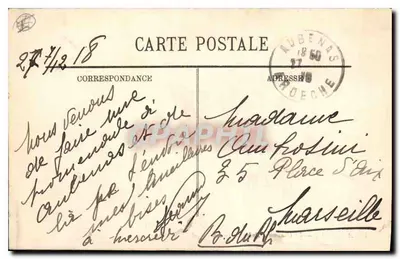 27/12 18
CARTE POSTALE
CORRESPONDANCE
ADRESSE
AUBENAS
ARDECHE
nous venons
de faire une
promenade
Aubenas et de
là je t'envoie
mes
bises
à
Madame
Ambrosini
35 Place d'Aix
Marseille
B. du R.